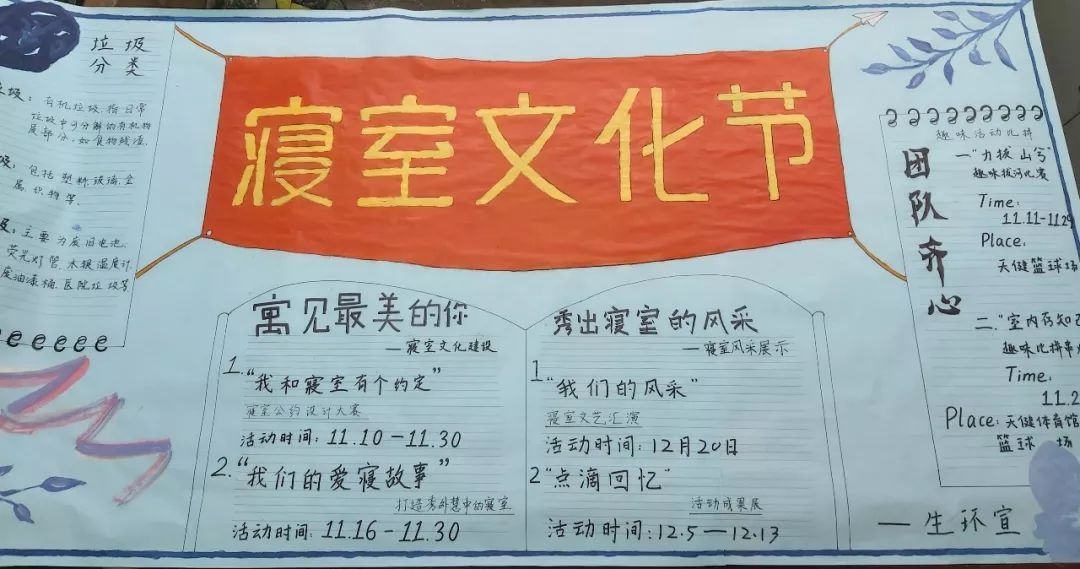 寝室文化节
垃圾
分类
圾：有机垃圾，指日常
垃圾中可分解的有机物
质部分，如食物残渣，
圾：包括塑料，玻璃，金
属，织物等，
圾：主要为废旧电池，
荧光灯管，水银温度计，
废油漆桶，医院垃圾等
寓见最美的你
—寝室文化建设
1.“我和寝室有个约定”
寝室公约设计大赛
活动时间：11.10-11.30
2.“我们的爱寝故事”
打造秀外慧中的寝室
活动时间：11.16-11.30
秀出寝室的风采
—寝室风采展示
1“我们的风采”
寝室文艺汇演
活动时间：12月20日
2“点滴回忆”
活动成果展
活动时间：12.5—12.13
团队齐心
趣味活动比拼
一“力拔山兮”
趣味拔河比赛
Time：
11.11-11.29
Place：
天健篮球场
二.“室内存知己
趣味比拼
Time，
11.2
Place：天健体育馆
篮球场
—生环宣